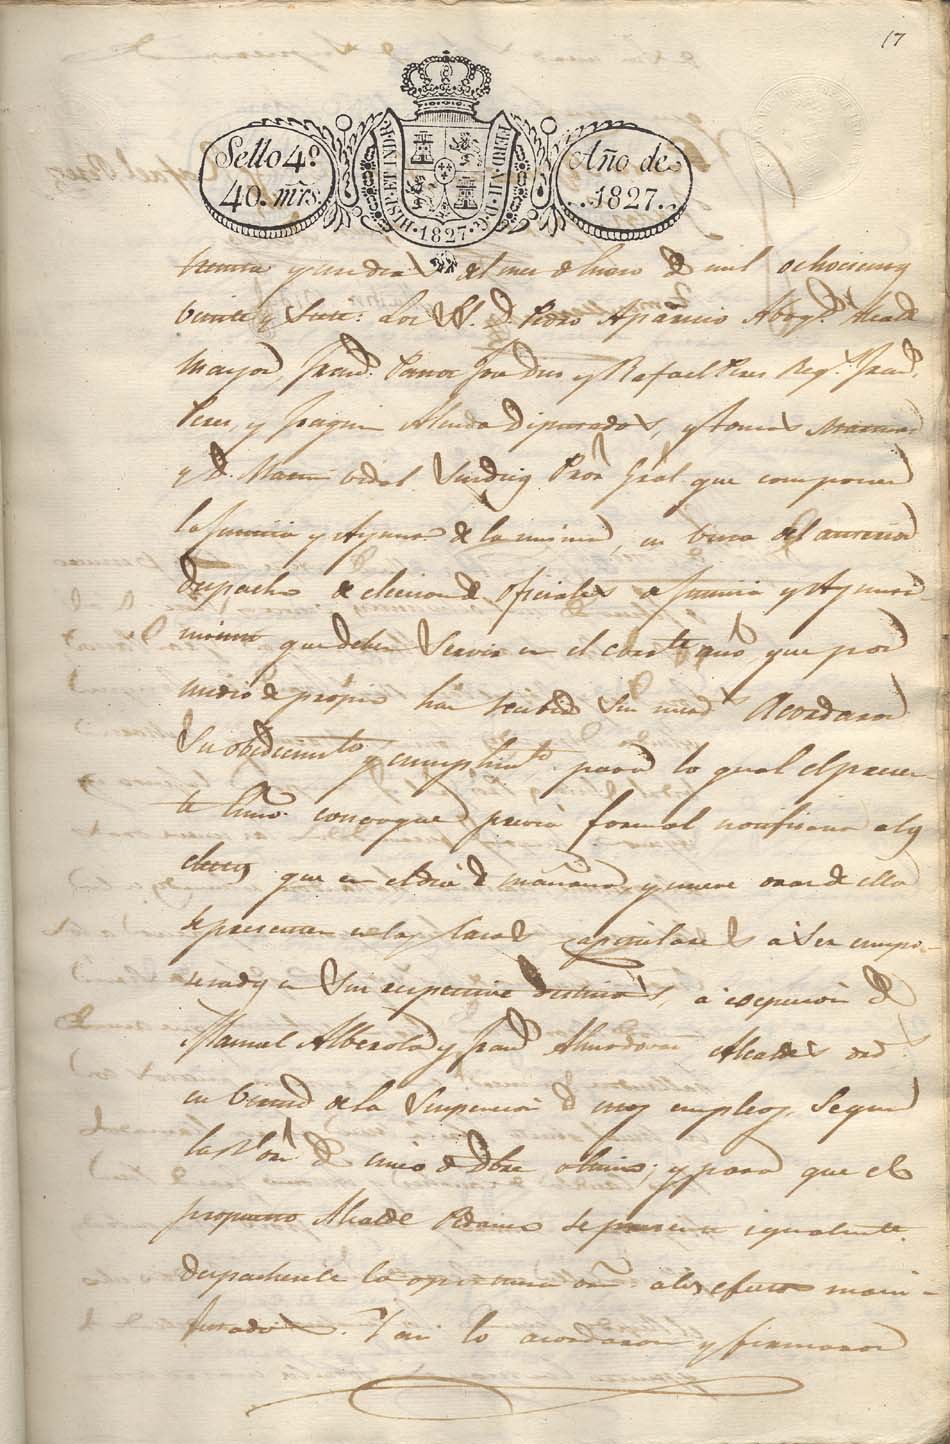 17
Sello 4.º
40. mrs.
HISP. ET IND. R.
FERD. VII. D. G.
1827
Año de
1827
treinta y un dias del mes de Enero de mil ochocientos
veinte y siete: Los SS. D. Pedro Aparicio Abogdo. Alcalde
mayor, Franco. y Rafael Peres Regs. Franco.
Peres, y Joaquin Diputados, y Tomas
y D. Vidal Sindico Pror. Gral. que componen
la Justicia y Ayunto. de la misma, en vista del anterior
despacho de eleccion de oficiales de Justicia y Ayunta-
miento que deben servir en el corrte. año, que por
medio de própio han recibido Acordaron
Su obedecimto. y cumplimto. para lo qual el presen-
te Esno. convoque previa formal notificacion a los
electos que en el dia de mañana, y nueve oras de ella
se presenten en las Salas Capitulares a ser empo-
secados en sus respectivos destinos, a escepcion de
Manuel Alberola y Franco. Almodovar Alcaldes
en virtud de la Suspencion de sus empleos, segun
la Rl. orn. de cinco de Dbre. ultimo; y para que el
propuesto Alcalde Pedaneo se presente igualmte.
despachesele la oportuna orn. a los efectos mani-
festados. Y asi lo acordaron y firmaron